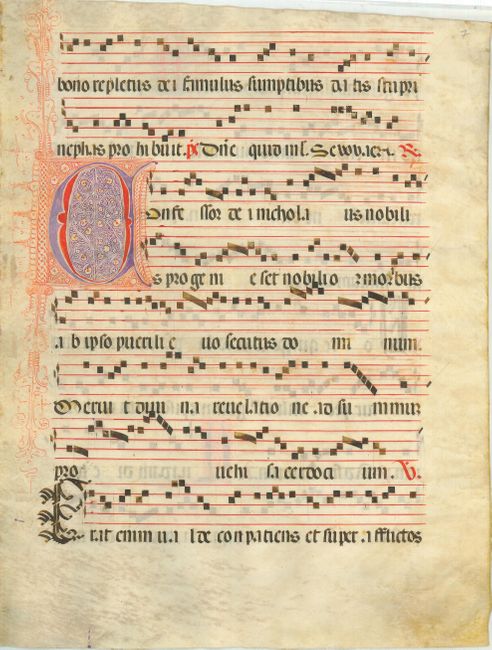 bono repletus dei famulus sumptibus da tis stupri
nephas pro hi buit. ps Dñe quid ml. Sevovaer. R.
Onfe ssor de i nichola us nobili
s pro ge ni e set nobilio r moribus
a b ipso puerili e uo secutus do mi num.
Meruit diui na reuelatio ne ad su mmum
pro uehi sa cerdoci um. V.
E rat enim ua l de conpatiens et super afflictos